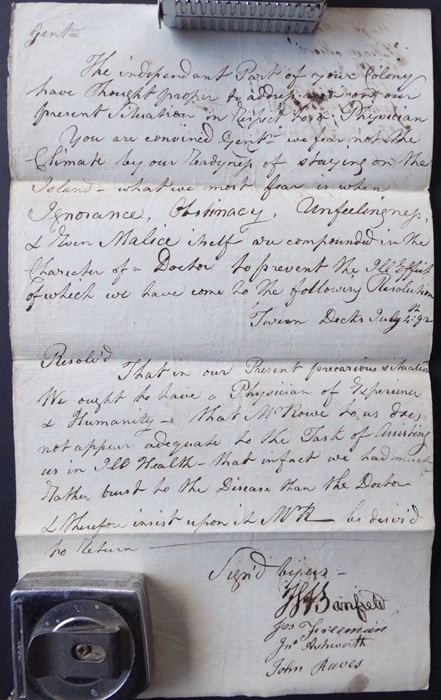 Gentn
The independant Part of your Colony
have thought proper to address you on our
present Situation in respect to a Physician
You are convinced Gentn we fear not the
Climate by our Readyness of staying on the
Island - what we most fear is when
Ignorance, Obstinacy, Unfeelingness,
& Even Malice itself are compounded in the
Character of a Doctor to prevent the Ill Effect
of which we have come to the following Resolution
Tween Decks July 4th: 92
Resolv'd
That in our Present precarious situation
We ought to have a Physician of Experience
& Humanity - that Mr Rowe to us does
not appear adequate to the Task of Assisting
us in Ill Health - that infact we had much
Rather trust to the Disease than the Doctor
& therefore insist upon it Mr R be desir'd
to Return
Sign'd by us -
Banfield
Jos Freeman
Jno Ashworth
John Raves